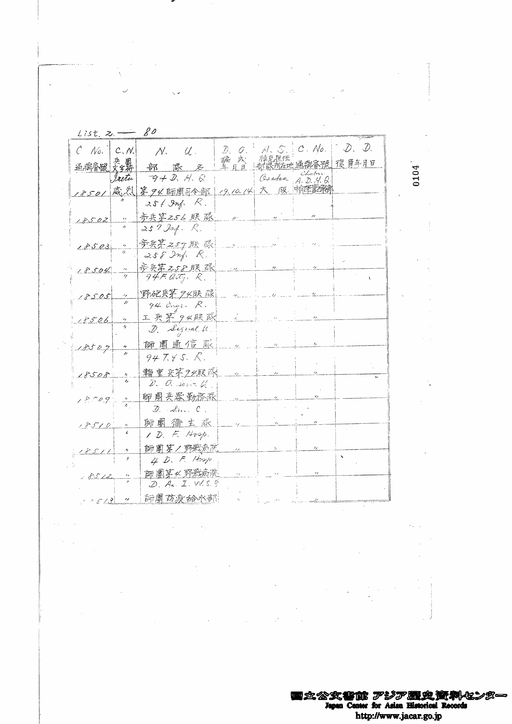 List. 2. — 80
C No. C.N. N. U. D. O. N. S. C. No. D. D.
通稱番號 兵團文字符 部隊名 編成年月日 通稱番號 復員年月日
94 D. H. Q. Osaka A.D.H.Q
18501 威烈 第94師團司令部 19.10.14 大阪
256 Inf. R.
18502 〃 歩兵第256聯隊 〃 〃 〃
257 Inf. R.
18503 〃 歩兵第257聯隊 〃 〃 〃
258 Inf. R.
18504 〃 歩兵第258聯隊 〃 〃 〃
94 R.
18505 〃 野砲兵第94聯隊 〃 〃 〃
94 Eng. R.
18506 〃 工兵第94聯隊 〃 〃 〃
D. Signal U.
18507 〃 師團通信隊 〃 〃 〃
94 T. & S. R.
18508 〃 輜重兵第94聯隊 〃 〃 〃
D. O. U.
18509 〃 師團兵器勤務隊 〃 〃 〃
D. C.
18510 〃 師團衛生隊 〃 〃 〃
1 D. F. Hosp.
18511 〃 師團第1野戰病院 〃 〃 〃
4 D. F. Hosp.
18512 〃 師團第4野戰病院 〃 〃 〃
D.
師團防疫給水部
0104
国立公文書館 アジア歴史資料センター
Japan Center for Asian Historical Records
http://www.jacar.go.jp